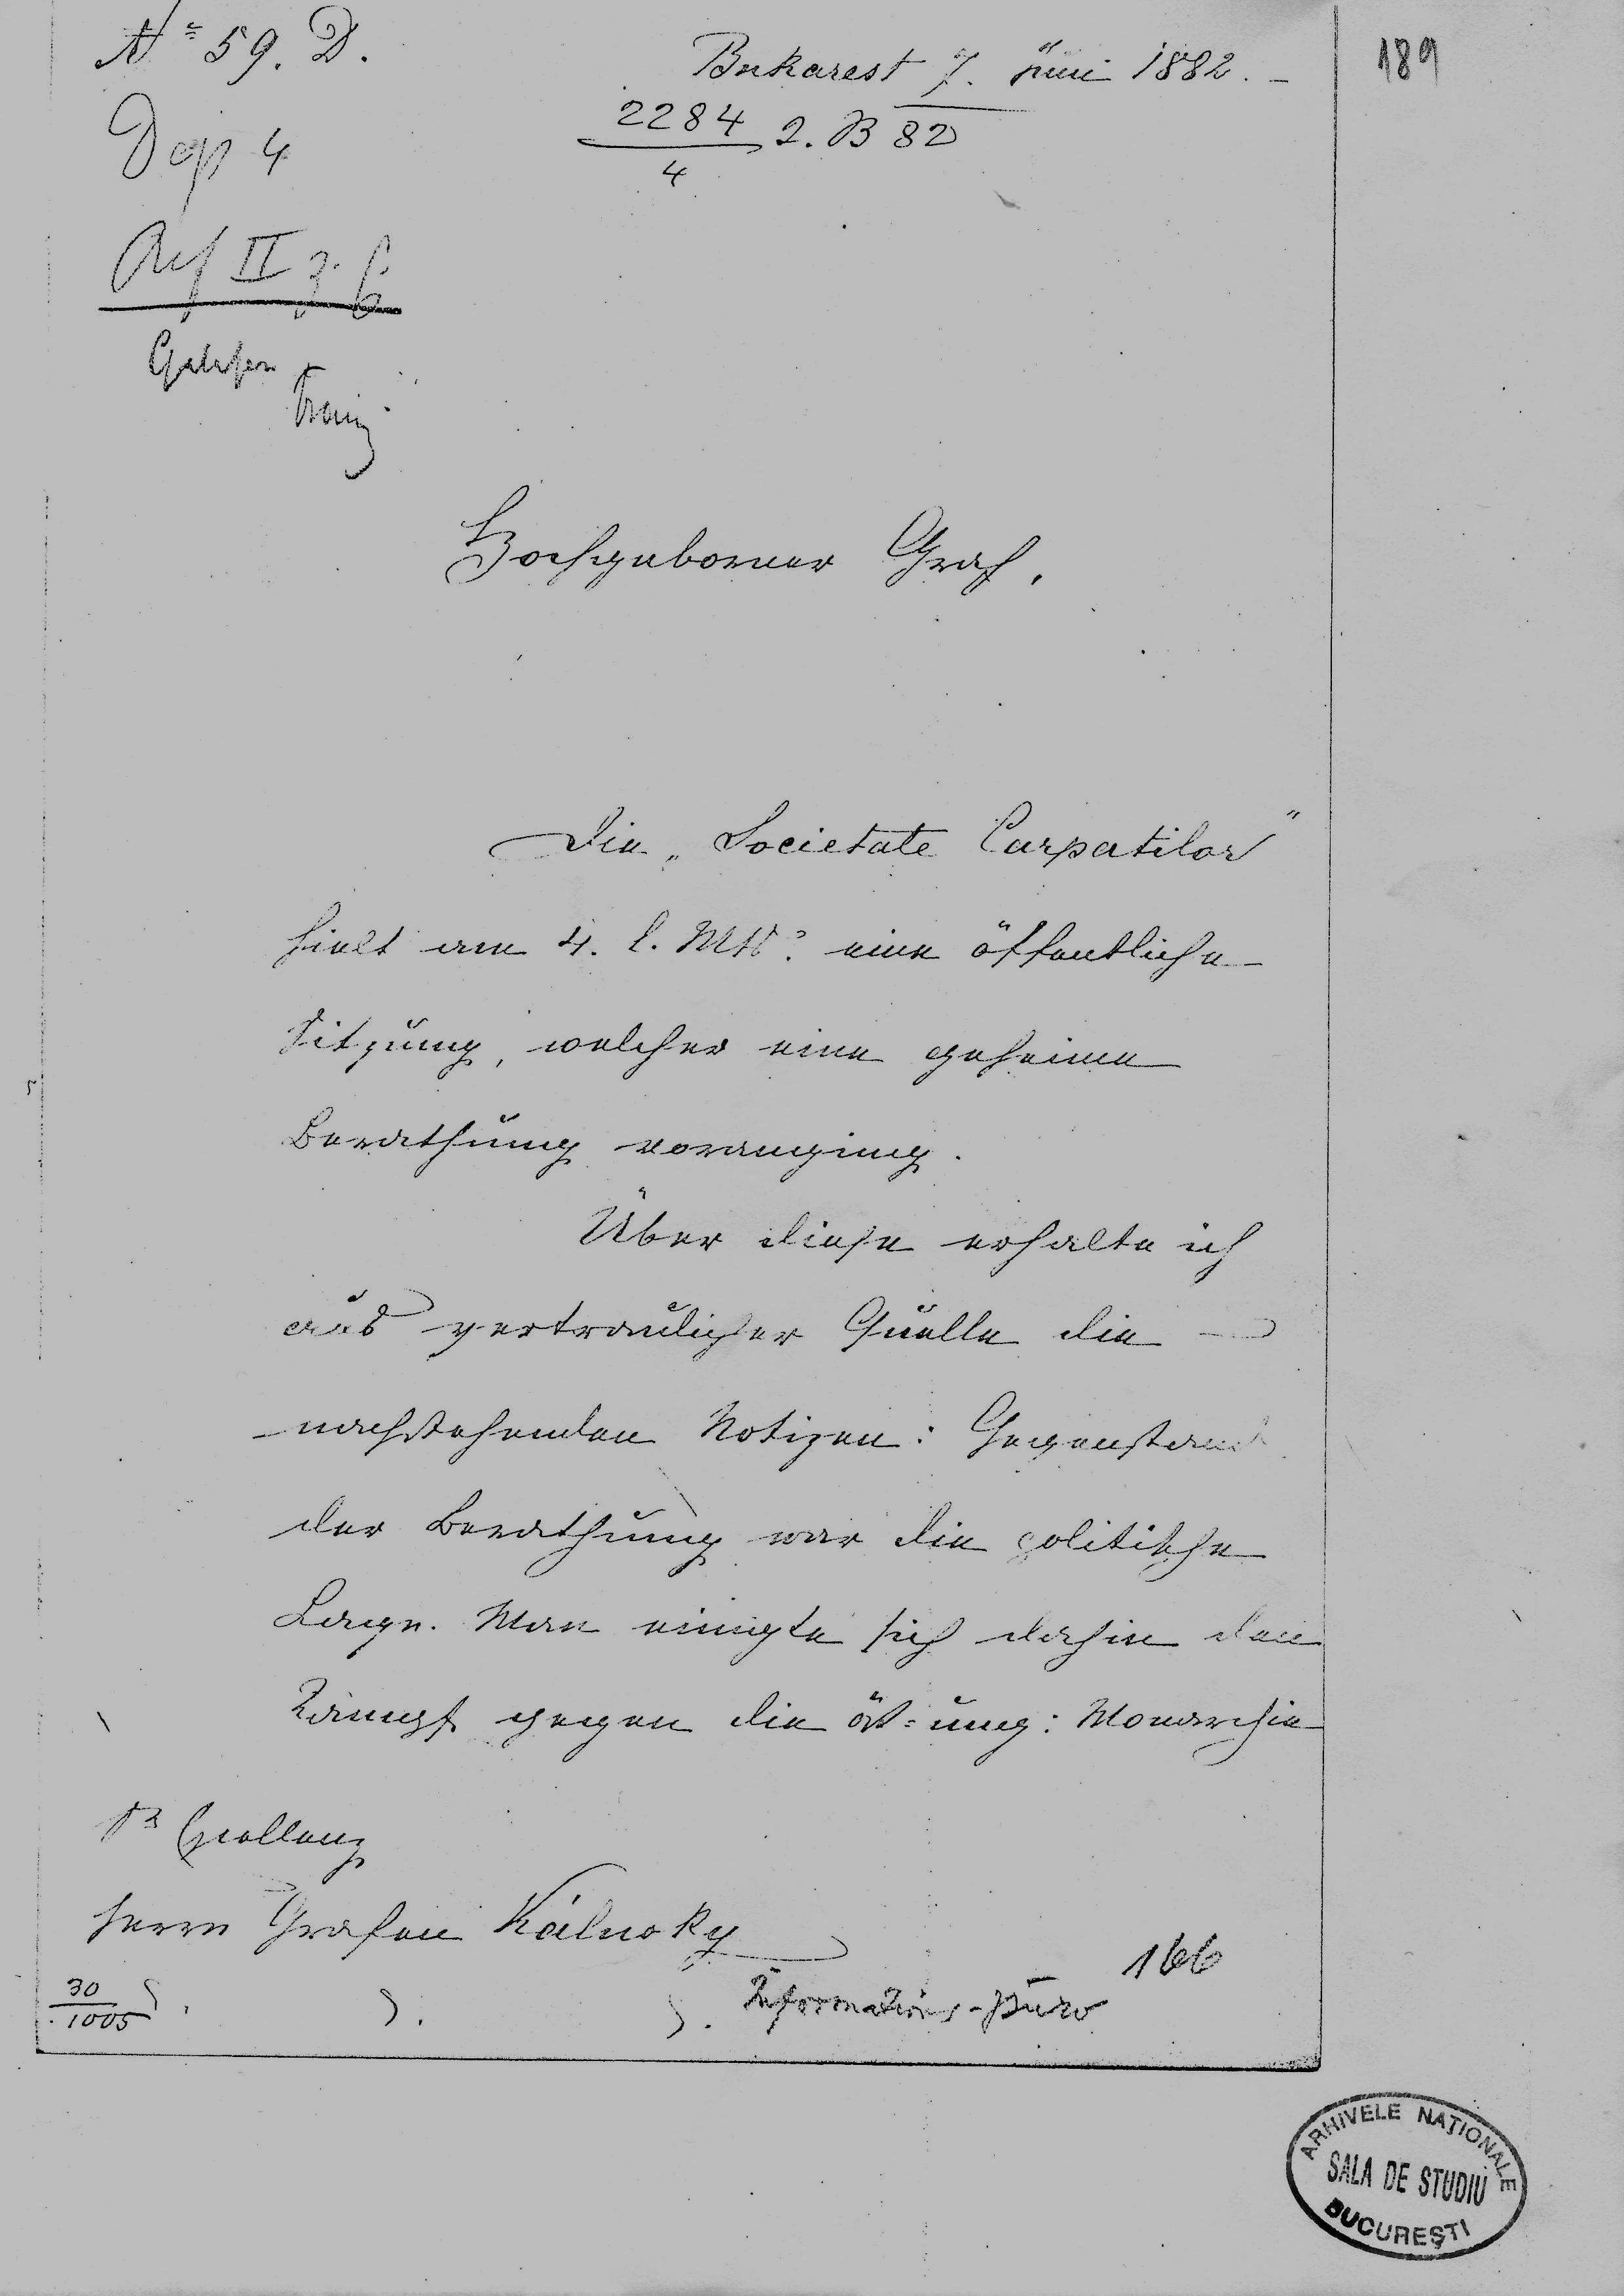 Nº 59. D.
Bukarest 7. Juni 1882.
189
2284
4
2. B 82
Dep 4
II
Gelesen
Hochgeborner Graf,
Die „Societate Carpatilor"
hielt am 4. l. Mts. eine öffentliche
Sitzung, welcher eine geheime
Berathung voranging.
Über diese erhalte ich
aus vertraulicher Quelle die
nachstehenden Notizen: Gegenstand
der Berathung war die politische
Lage. Man einigte sich dahin den
Kampf gegen die öst:-ung: Monarchie
Sr Excellenz
Herrn Grafen Kálnoky
166
30
1005
Informations-Büro
ARHIVELE NAŢIONALE
SALA DE STUDIU
BUCUREŞTI